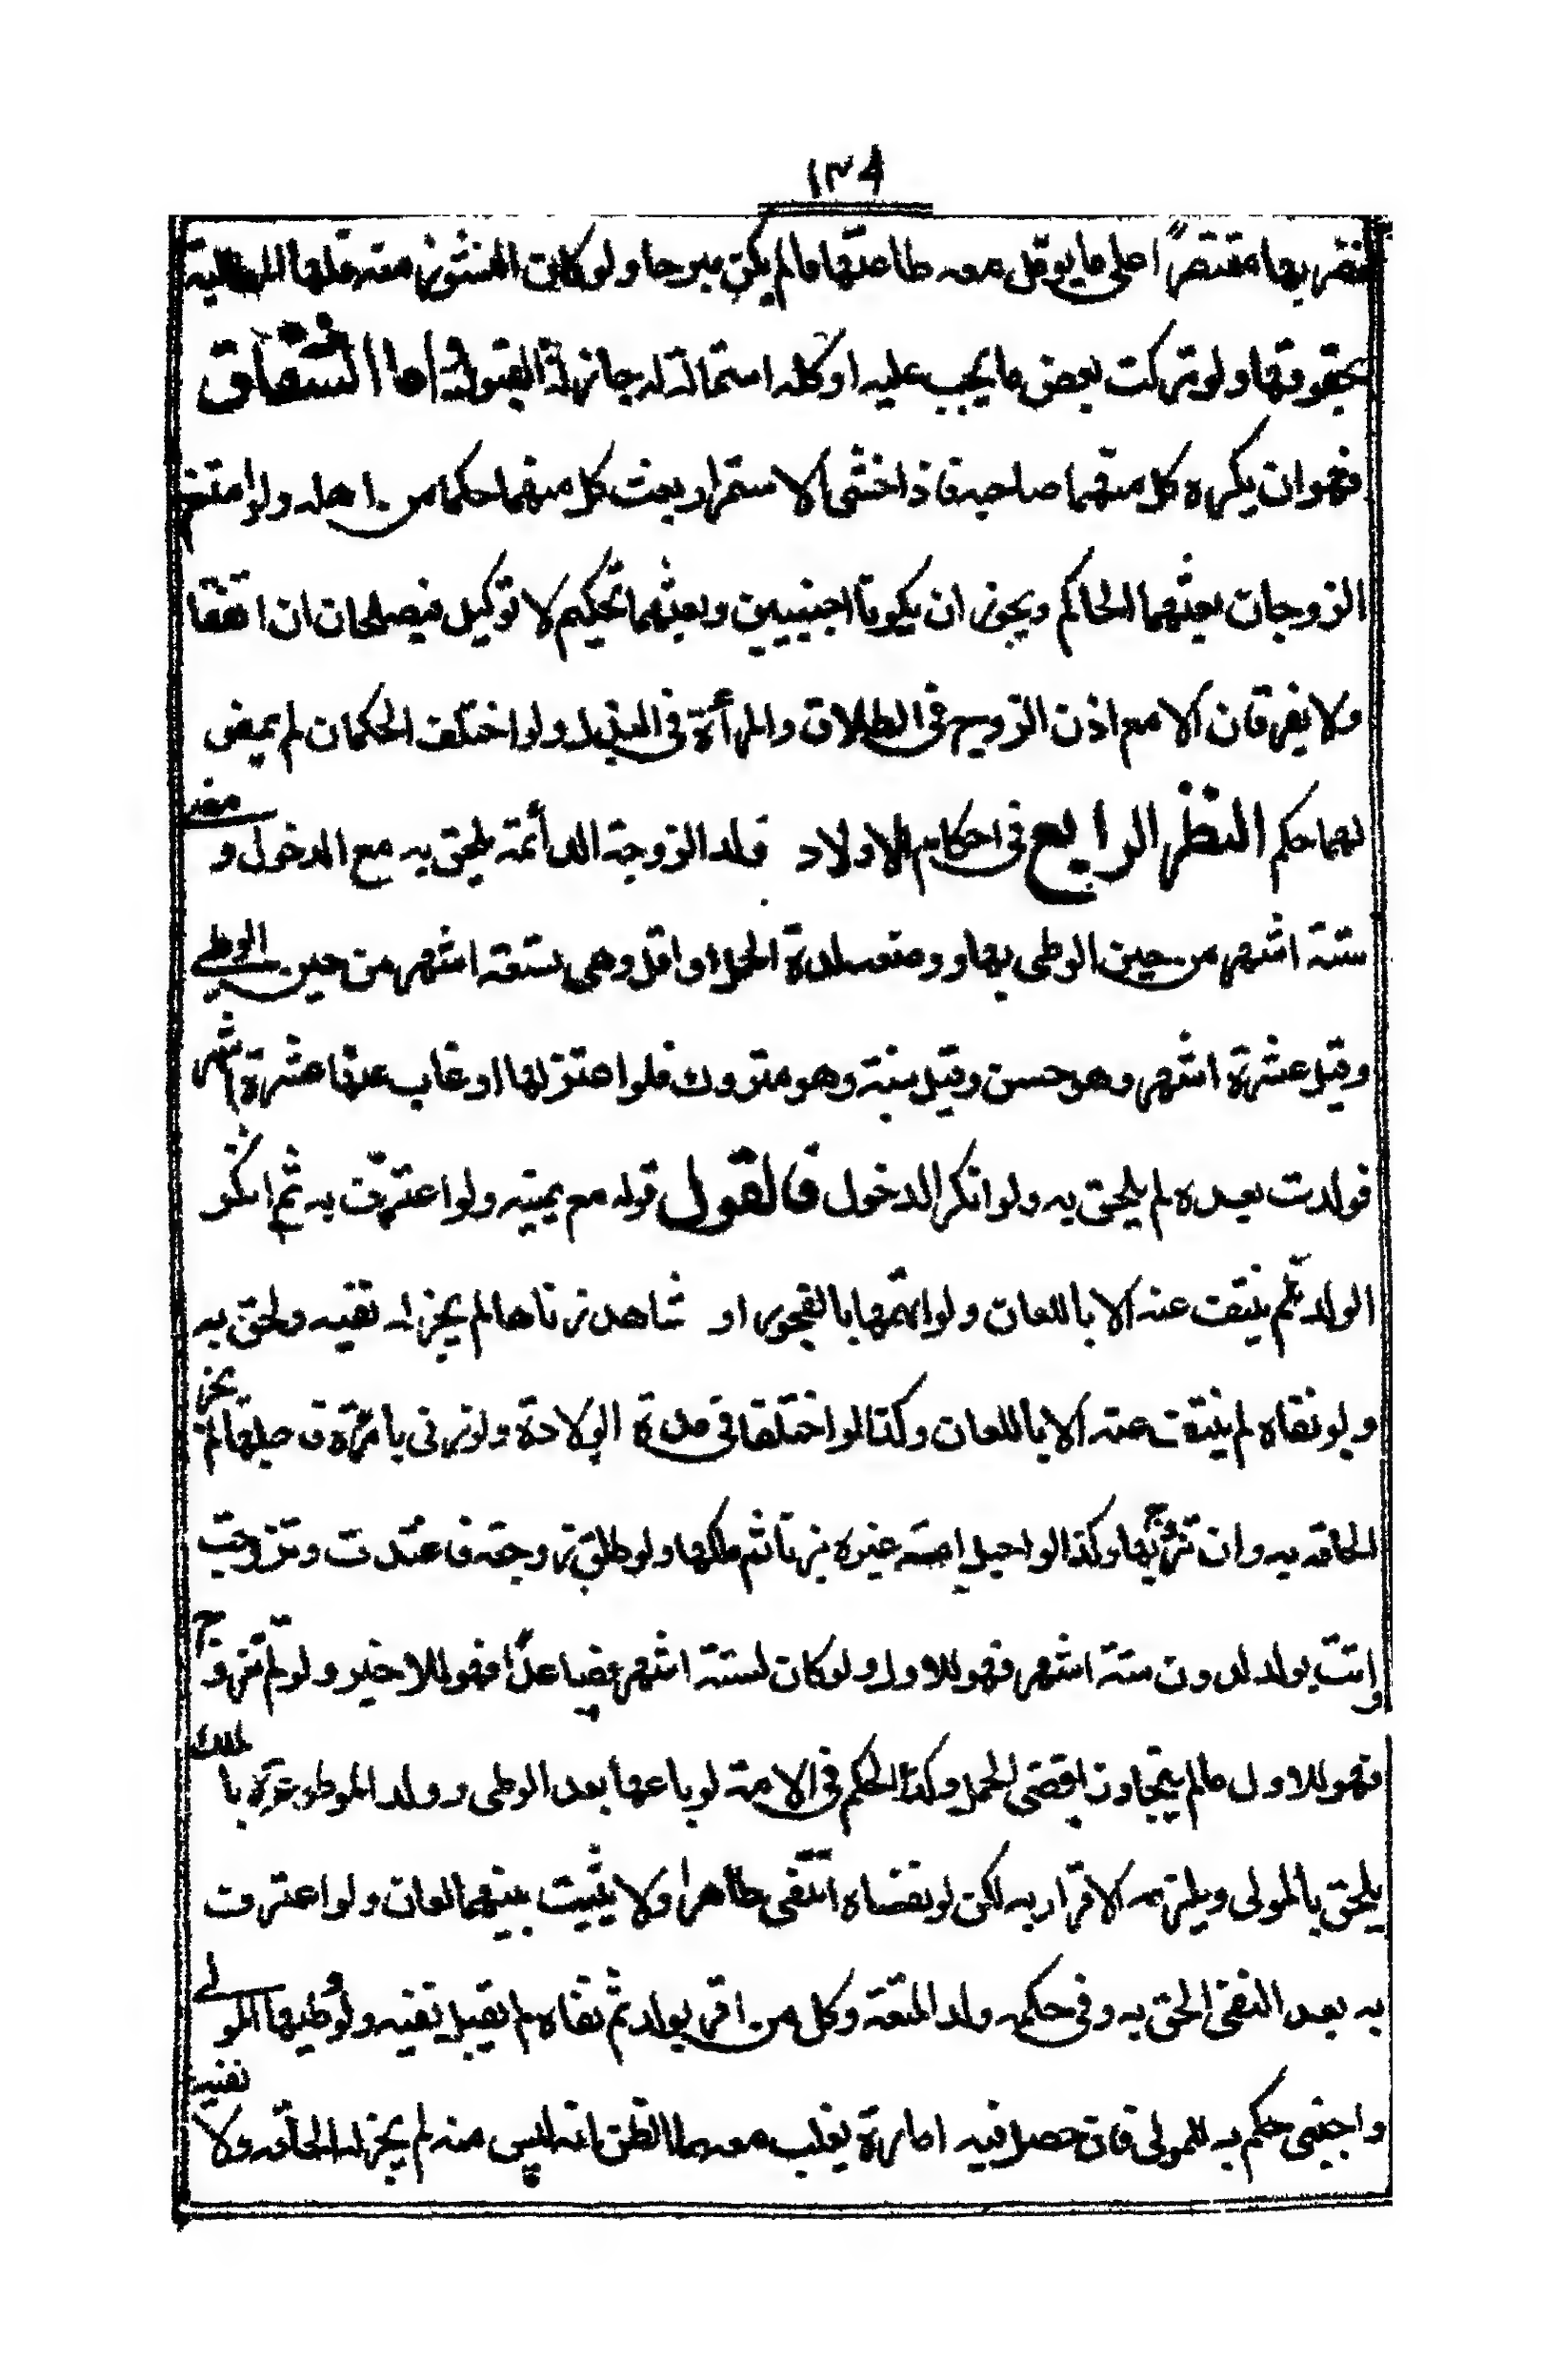 ١٣٨
ضربها مقتصرًا على ما يؤمل معه طاعتها ما لم يكن مبرحا ولو كان النشوز منه فلها المطالبة
بحقوقها ولو تركت بعض ما يجب عليه او كله استمالة له جاز له القبول واما الشقاق
فهو ان يكره كل منهما صاحبه فاذا خشي الاستمرار بعث كل منهما حكما من اهله ولو امتنع
الزوجان بعثهما الحاكم ويجوز ان يكونا اجنبيين وبعثهما تحكيم لا توكيل فيصلحان ان اتفقا
ولا يفرقان الا مع اذن الزوج في الطلاق والمرأة في البذل ولو اختلف الحكمان لم يمض
لهما حكم النظر الرابع في احكام الاولاد ولد الزوجة الدائمة يلحق به مع الدخول و مضي
ستة اشهر من حين الوطى بها ووضعه لمدة الحمل او اقل وهي تسعة اشهر من حين الوطي
وقيل عشرة اشهر وهو حسن وقيل سنة وهو متروك فلو اعتزلها او غاب عنها عشرة اشهر
فولدت بعده لم يلحق به ولو انكر الدخول فالقول قوله مع يمينه ولو اعترف به ثم انكر
الولد لم ينتف عنه الا باللعان ولو اتهمها بالفجور او شاهد زناها لم يجز له نفيه ولحق به
ولو نفاه لم ينتف عنه الا باللعان وكذا لو اختلفا في مدة الولادة ولو زنى بامرأة فحبلها لم يجز
الحاقه به وان تزوج بها وكذا لو احبل امة غيره بزنا ثم ملكها ولو طلق زوجته فاعتدت وتزوجت
واتت بولد لدون ستة اشهر فهو للاول ولو كان لستة اشهر فصاعدًا فهو للاخير ولو لم تتزوج
فهو للاول ما لم يتجاوز اقصى الحمل وكذا الحكم في الامة لو باعها بعد الوطى وولد الموطوءة بالملك
يلحق بالمولى ويلزمه الاقرار به لكن لو نفاه انتفى ظاهرا ولا يثبت بينهما لعان ولو اعترف
به بعد النفى الحق به وفي حكمه ولد المتعة وكل من اقر بولد ثم نفاه لم يقبل نفيه ولو وطيها المولى
واجنبي حكم به للمولى فان حصل فيه امارة يغلب معها الظن انه ليس منه لم يجز له الحاقه ولا نفيه